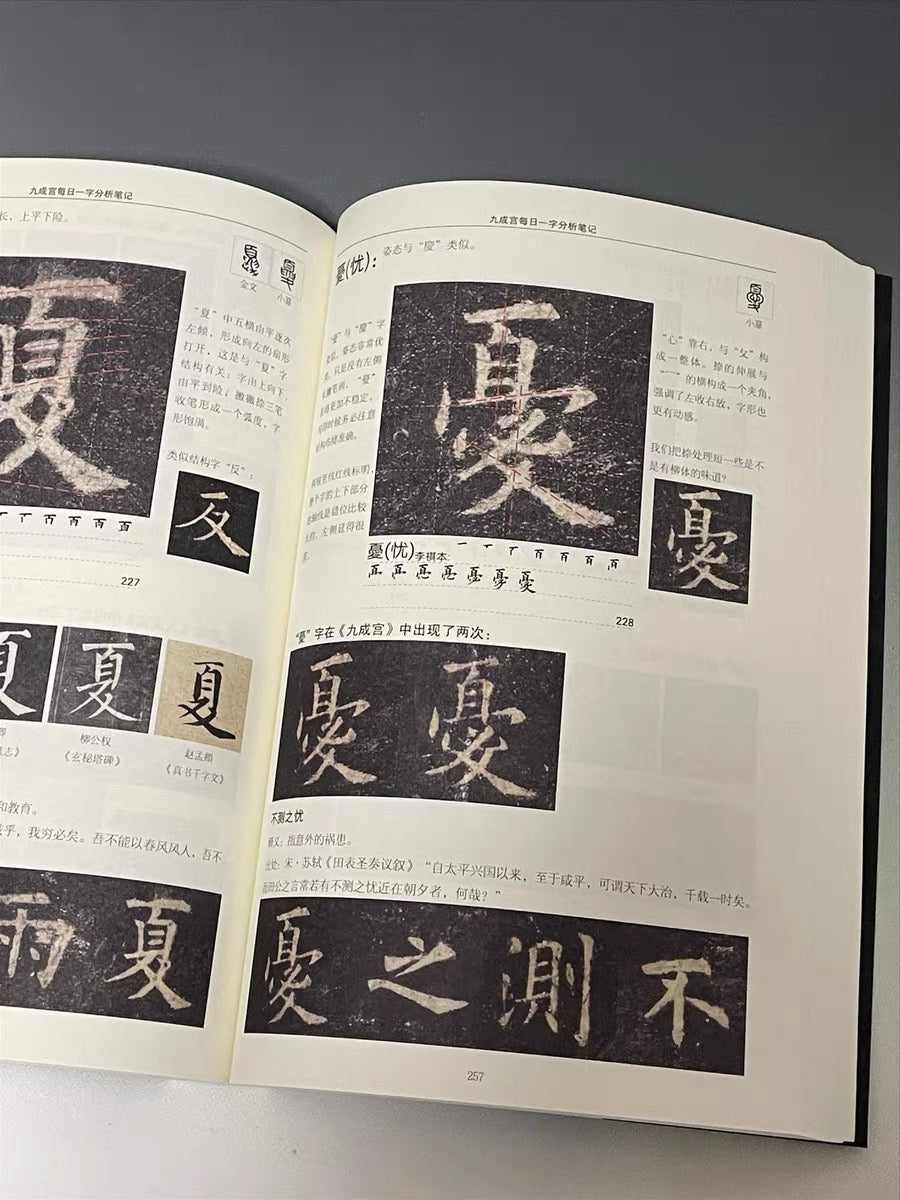 九成宫每日一字分析笔记
长，上平下险。
金文
小篆
夏
“夏”中五横由平逐次
左倾，形成向左的扇形
打开，这是与“夏”字
结构有关：字由上向下，
由平到险；撇撇捺三笔
收笔形成一个弧度，字
形饱满。
类似结构字“反”：
反
227
夏
夏
柳公权
《玄秘塔碑》
赵孟頫
《真书千字文》
和教育。
我穷必矣。吾不能以春风风人，吾不
雨夏
九成宫每日一字分析笔记
憂(忧)：
姿态与“廈”类似。
小篆
憂
“心”靠右，与“夊”构
成一整体。捺的伸展与
“冖”的横构成一个夹角，
强调了左收右放，字形也
更有动感。
我们把捺处理短一些是不
是有柳体的味道？
憂
憂(忧)李祺本：
228
“憂”字在《九成宫》中出现了两次：
憂憂
不测之忧
释义：指意外的祸患。
出处：宋·苏轼《田表圣奏议叙》“自太平兴国以来，至于咸平，可谓天下大治，千载一时矣。
而田公之言常若有不测之忧近在朝夕者，何哉？”
憂之測不
257